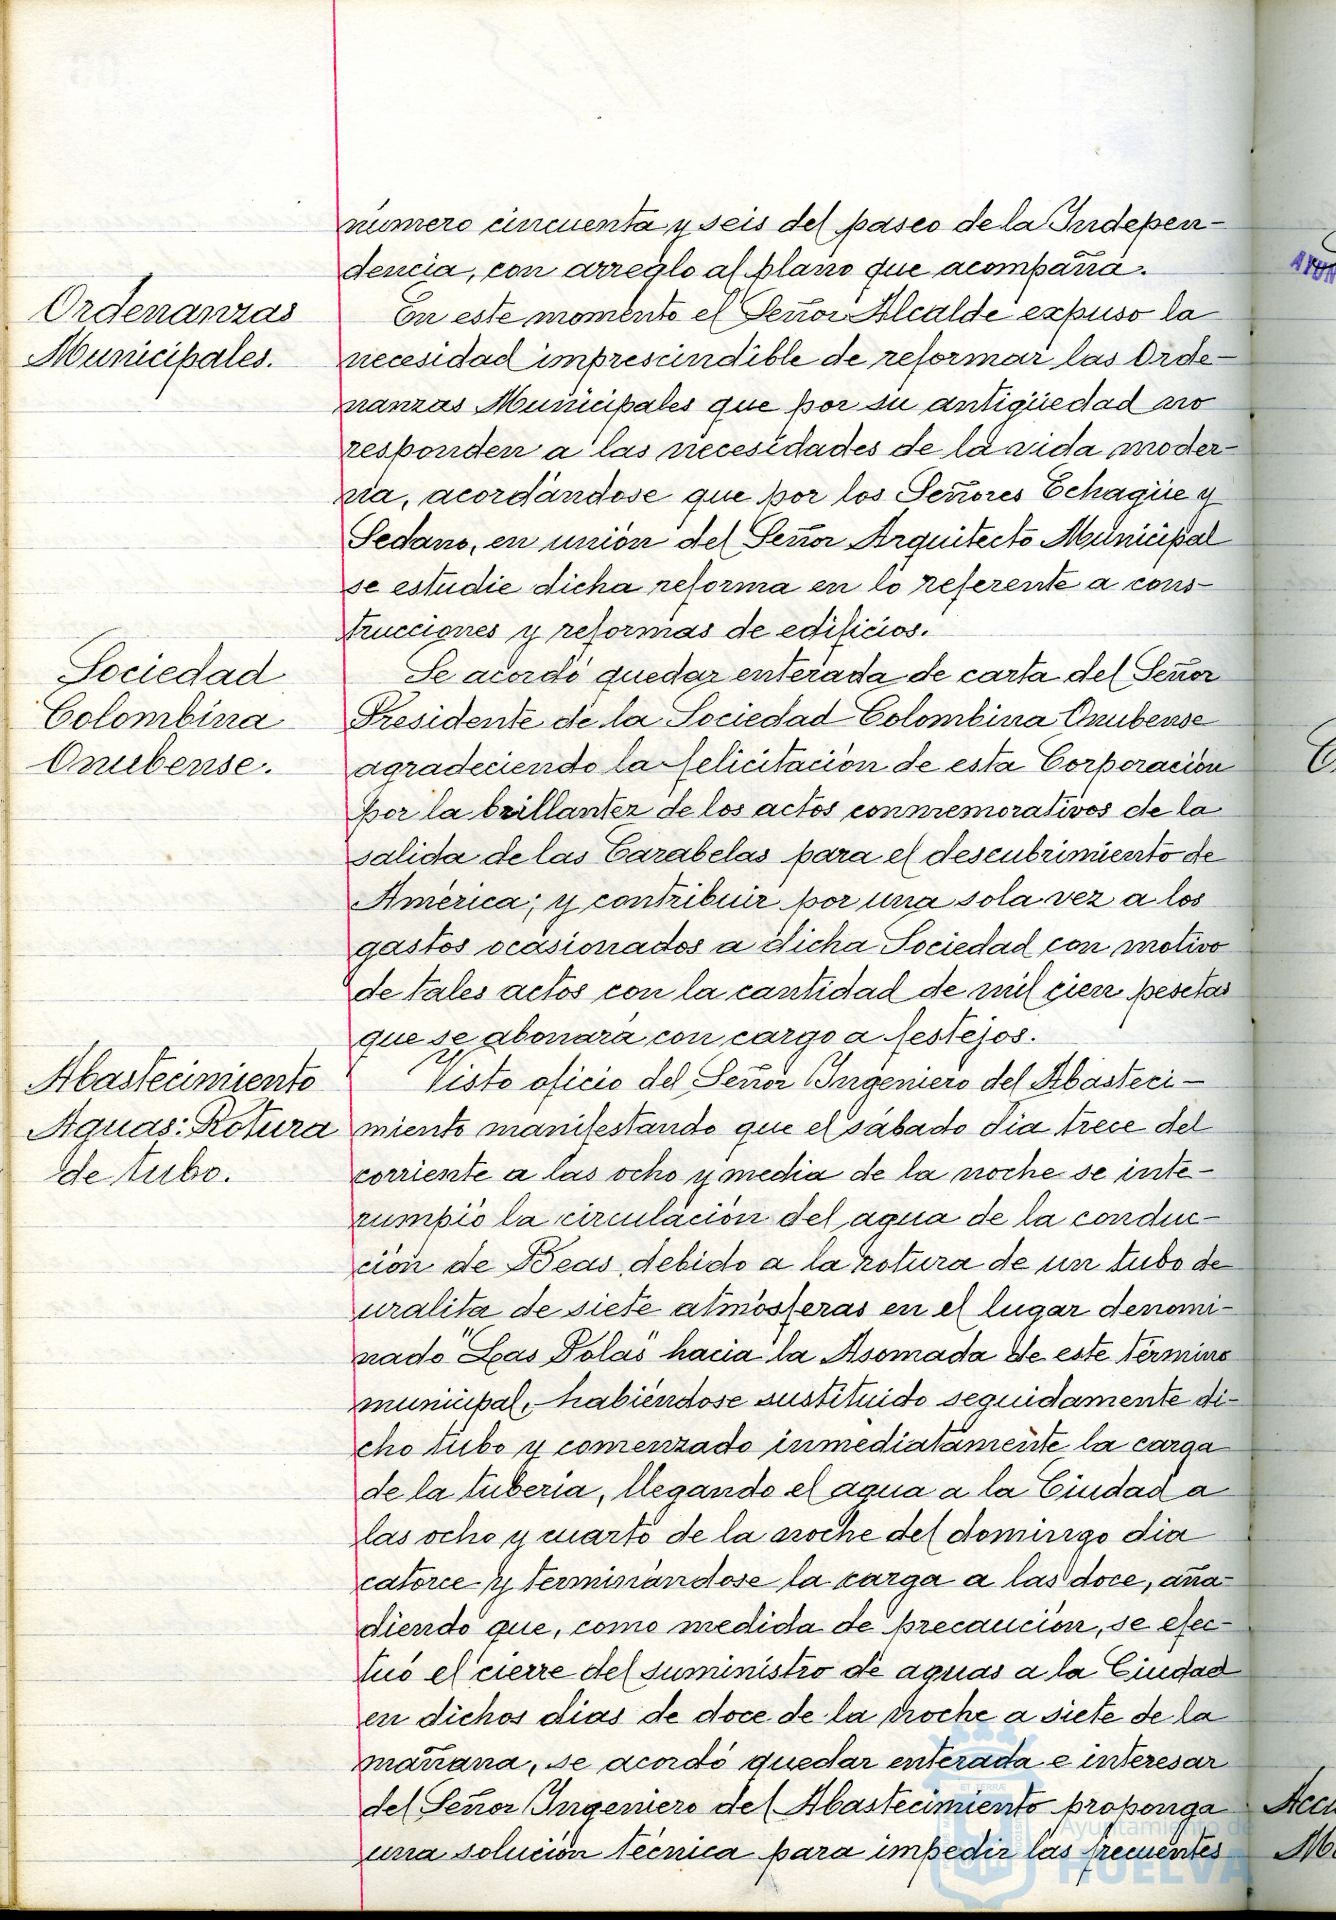 número cincuenta y seis del paseo de la Indepen-
dencia, con arreglo al plano que acompaña.
Ordenanzas
Municipales.
En este momento el Señor Alcalde expuso la
necesidad imprescindible de reformar las Orde-
nanzas Municipales que por su antigüedad no
responden a las necesidades de la vida moder-
na, acordándose que por los Señores Echagüe y
Sedano, en unión del Señor Arquitecto Municipal
se estudie dicha reforma en lo referente a cons-
trucciones y reformas de edificios.
Sociedad
Colombina
Onubense.
Se acordó quedar enterada de carta del Señor
Presidente de la Sociedad Colombina Onubense
agradeciendo la felicitación de esta Corporación
por la brillantez de los actos conmemorativos de la
salida de las Carabelas para el descubrimiento de
América; y contribuir por una sola vez a los
gastos ocasionados a dicha Sociedad con motivo
de tales actos con la cantidad de mil cien pesetas
que se abonará con cargo a festejos.
Abastecimiento
Aguas: Rotura
de tubo.
Visto oficio del Señor Ingeniero del Abasteci-
miento manifestando que el sábado día trece del
corriente a las ocho y media de la noche se inte-
rumpió la circulación del agua de la conduc-
ción de Beas debido a la rotura de un tubo de
uralita de siete atmósferas en el lugar denomi-
nado "Las Polas" hacia la Asomada de este término
municipal, habiéndose sustituido seguidamente di-
cho tubo y comenzado inmediatamente la carga
de la tubería, llegando el agua a la Ciudad a
las ocho y cuarto de la noche del domingo día
catorce y terminándose la carga a las doce, aña-
diendo que, como medida de precaución, se efec-
tuó el cierre del suministro de aguas a la Ciudad
en dichos días de doce de la noche a siete de la
mañana, se acordó quedar enterada e interesar
del Señor Ingeniero del Abastecimiento proponga
una solución técnica para impedir las frecuentes
Ayuntamiento de
HUELVA
AYUN